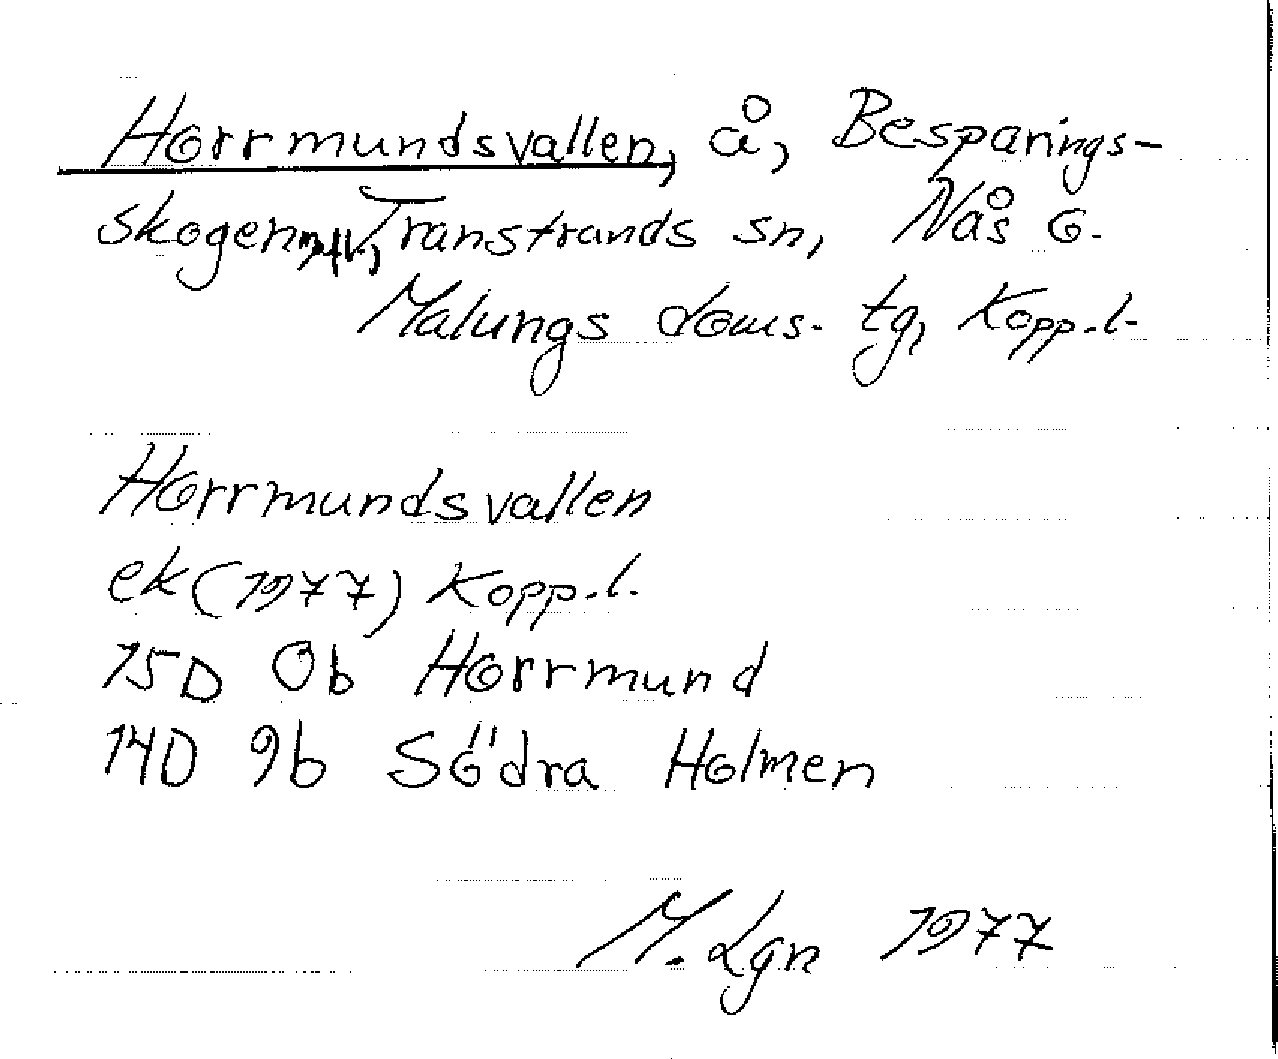 Horrmundsvallen, å, Besparings-
skogen m fl., Transtrands sn, Nås o.
Malungs doms. tg, Kopp. l.
Horrmundsvallen
ek (1977) Kopp. l.
15D 0b Horrmund
14D 9b Södra Holmen
M. Lgn 1977